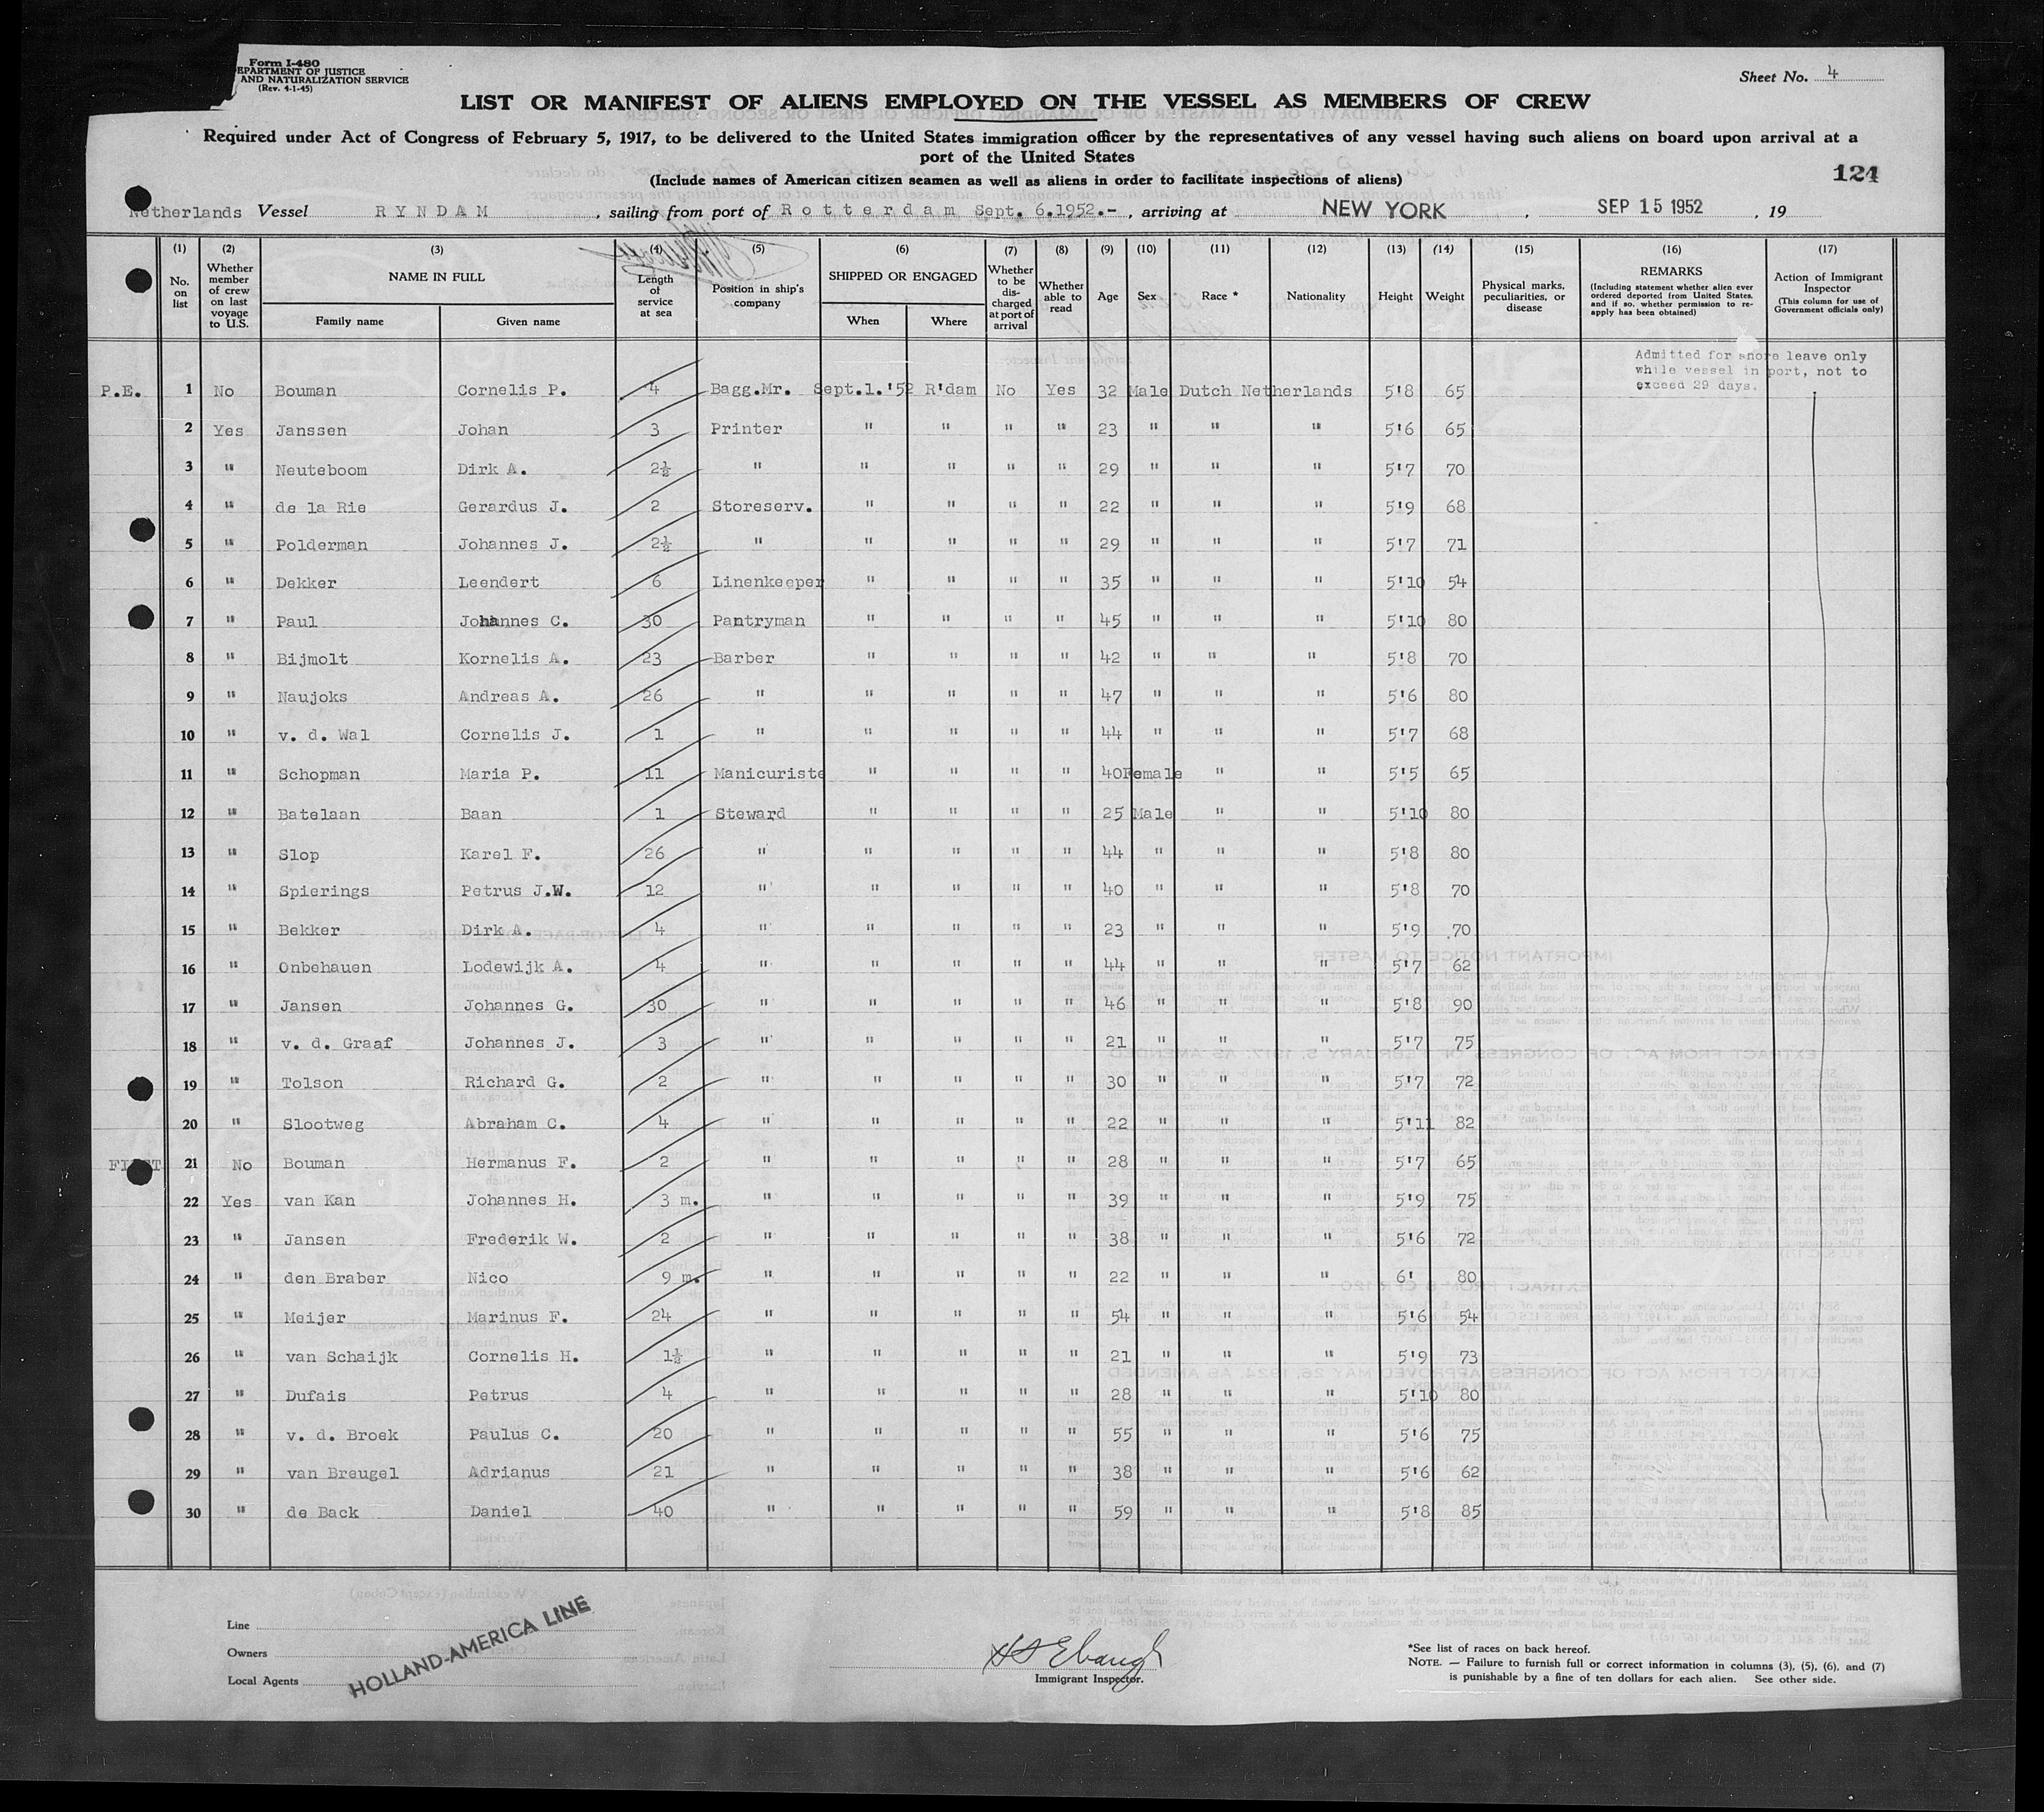 Form I-480
EPARTMENT OF JUSTICE
AND NATURALIZATION SERVICE
(Rev. 4-1-45)
Sheet No. 4
LIST OR MANIFEST OF ALIENS EMPLOYED ON THE VESSEL AS MEMBERS OF CREW
Required under Act of Congress of February 5, 1917, to be delivered to the United States immigration officer by the representatives of any vessel having such aliens on board upon arrival at a
port of the United States
(Include names of American citizen seamen as well as aliens in order to facilitate inspections of aliens)
124
Netherlands Vessel RYNDAM, sailing from port of Rotterdam Sept. 6.1952.-, arriving at NEW YORK, SEP 15 1952, 19
(1) (2) (3) (4) (5) (6) (7) (8) (9) (10) (11) (12) (13) (14) (15) (16) (17)
No. on list
Whether member of crew on last voyage to U.S.
NAME IN FULL
Family name Given name
Length of service at sea
Position in ship's company
SHIPPED OR ENGAGED
When Where
Whether to be discharged at port of arrival
Whether able to read
Age Sex Race * Nationality Height Weight
Physical marks, peculiarities, or disease
REMARKS
(Including statement whether alien ever ordered deported from United States, and if so, whether permission to re-apply has been obtained)
Action of Immigrant Inspector
(This column for use of Government officials only)
Admitted for shore leave only
while vessel in port, not to
exceed 29 days.
P.E. 1 No Bouman Cornelis P. 4 Bagg.Mr. Sept.1.'52 R'dam No Yes 32 Male Dutch Netherlands 5'8 65
2 Yes Janssen Johan 3 Printer " " " " 23 " " " 5'6 65
3 " Neuteboom Dirk A. 2½ " " " " " 29 " " " 5'7 70
4 " de la Rie Gerardus J. 2 Storeserv. " " " " 22 " " " 5'9 68
5 " Polderman Johannes J. 2½ " " " " " 29 " " " 5'7 71
6 " Dekker Leendert 6 Linenkeeper " " " " 35 " " " 5'10 54
7 " Paul Johannes C. 30 Pantryman " " " " 45 " " " 5'10 80
8 " Bijmolt Kornelis A. 23 Barber " " " " 42 " " " 5'8 70
9 " Naujoks Andreas A. 26 " " " " " 47 " " " 5'6 80
10 " v. d. Wal Cornelis J. 1 " " " " " 44 " " " 5'7 68
11 " Schopman Maria P. 11 Manicuriste " " " " 40 Female " " 5'5 65
12 " Batelaan Baan 1 Steward " " " " 25 Male " " 5'10 80
13 " Slop Karel F. 26 " " " " " 44 " " " 5'8 80
14 " Spierings Petrus J.W. 12 " " " " " 40 " " " 5'8 70
15 " Bekker Dirk A. 4 " " " " " 23 " " " 5'9 70
16 " Onbehauen Lodewijk A. 4 " " " " " 44 " " " 5'7 62
17 " Jansen Johannes G. 30 " " " " " 46 " " " 5'8 90
18 " v. d. Graaf Johannes J. 3 " " " " " 21 " " " 5'7 75
19 " Tolson Richard G. 2 " " " " " 30 " " " 5'7 72
20 " Slootweg Abraham C. 4 " " " " " 22 " " " 5'11 82
FIRST 21 No Bouman Hermanus F. 2 " " " " " 28 " " " 5'7 65
22 Yes van Kan Johannes H. 3 m. " " " " " 39 " " " 5'9 75
23 " Jansen Frederik W. 2 " " " " " 38 " " " 5'6 72
24 " den Braber Nico 9 m. " " " " " 22 " " " 6' 80
25 " Meijer Marinus F. 24 " " " " " 54 " " " 5'6 54
26 " van Schaijk Cornelis H. 1½ " " " " " 21 " " " 5'9 73
27 " Dufais Petrus 4 " " " " " 28 " " " 5'10 80
28 " v. d. Broek Paulus C. 20 " " " " " 55 " " " 5'6 75
29 " van Breugel Adrianus 21 " " " " " 38 " " " 5'6 62
30 " de Back Daniel 40 " " " " " 59 " " " 5'8 85
Line
Owners
Local Agents
HOLLAND-AMERICA LINE
Immigrant Inspector.
*See list of races on back hereof.
NOTE. — Failure to furnish full or correct information in columns (3), (5), (6), and (7)
is punishable by a fine of ten dollars for each alien. See other side.